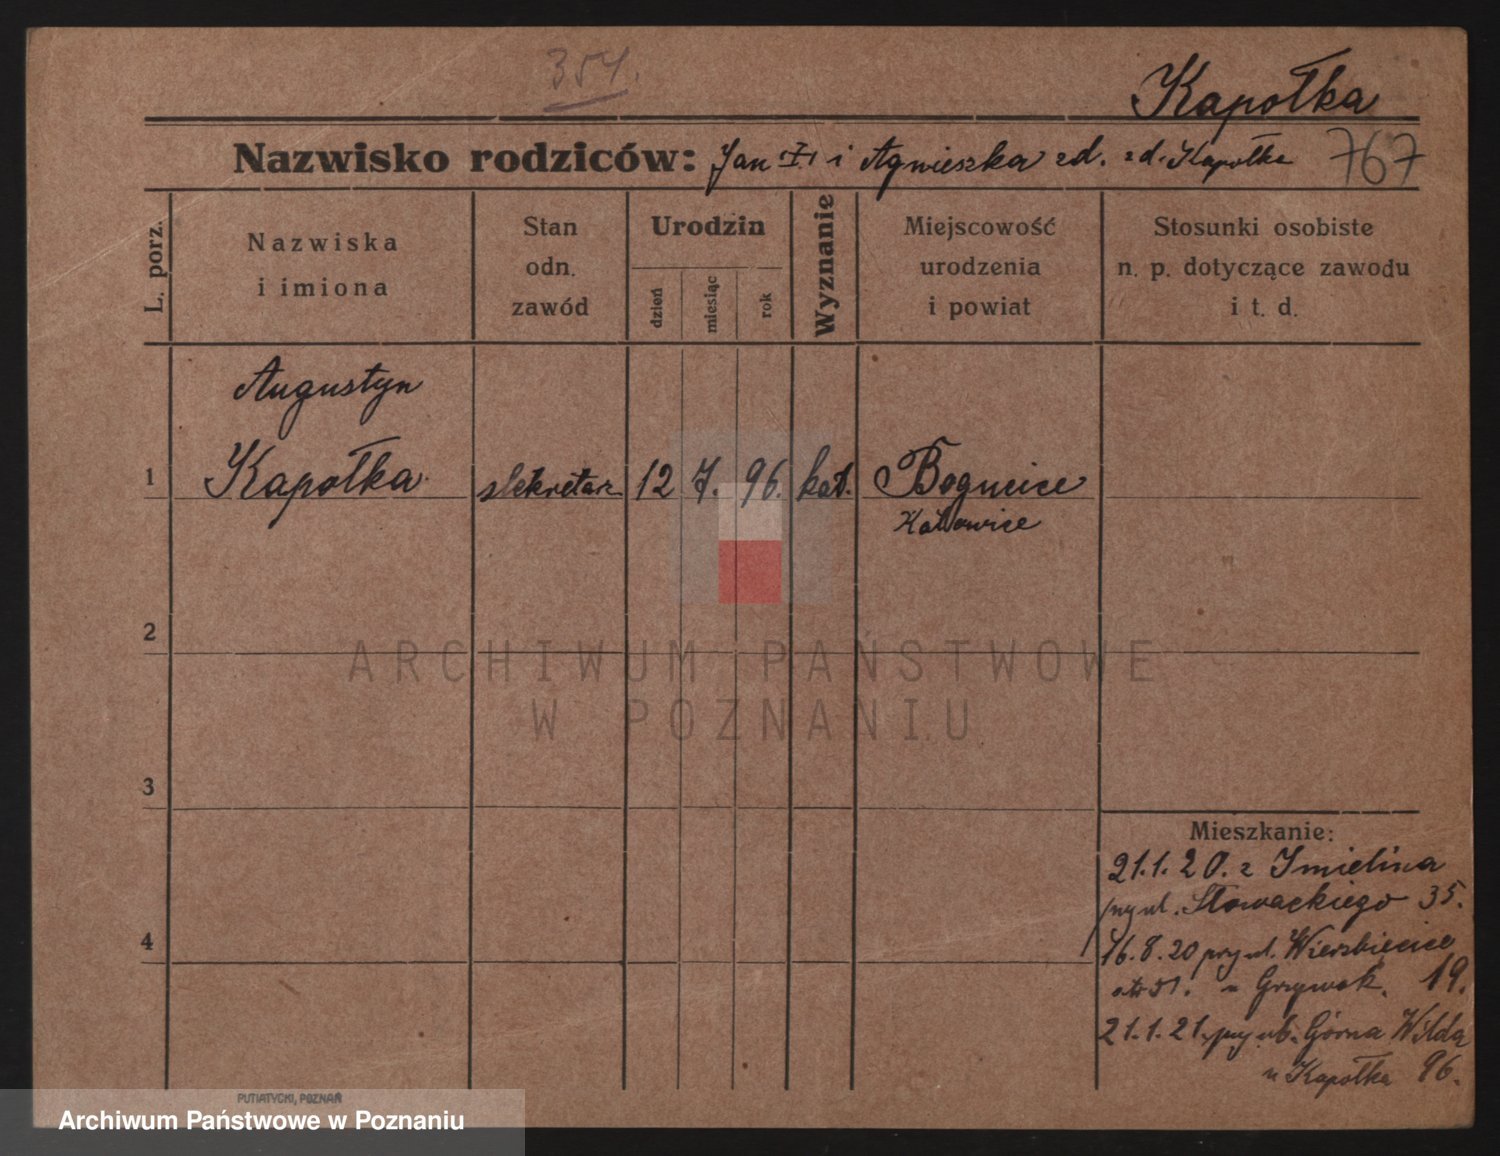 354.
Kapołka
Nazwisko rodziców: Jan i Agnieszka zd. zd. Kapołka 767
L. porz.
Nazwiska
i imiona
Stan
odn.
zawód
Urodzin
dzień
miesiąc
rok
Wyznanie
Miejscowość
urodzenia
i powiat
Stosunki osobiste
n. p. dotyczące zawodu
i t. d.
Augustyn
1 Kapołka sekretarz 12 7. 96. kat. Bogucice
Katowice
2
ARCHIWUM PAŃSTWOWE
W POZNANIU
3
Mieszkanie:
21.1.20. z Imielina
przy ul. Słowackiego 35.
4
16.8.20 przy ul. Wierzbięcice
u Grzywak. 19.
21.1.21. przy ul. Górna Wilda
u Kapołka 96.
PUTIATYCKI, POZNAŃ
Archiwum Państwowe w Poznaniu